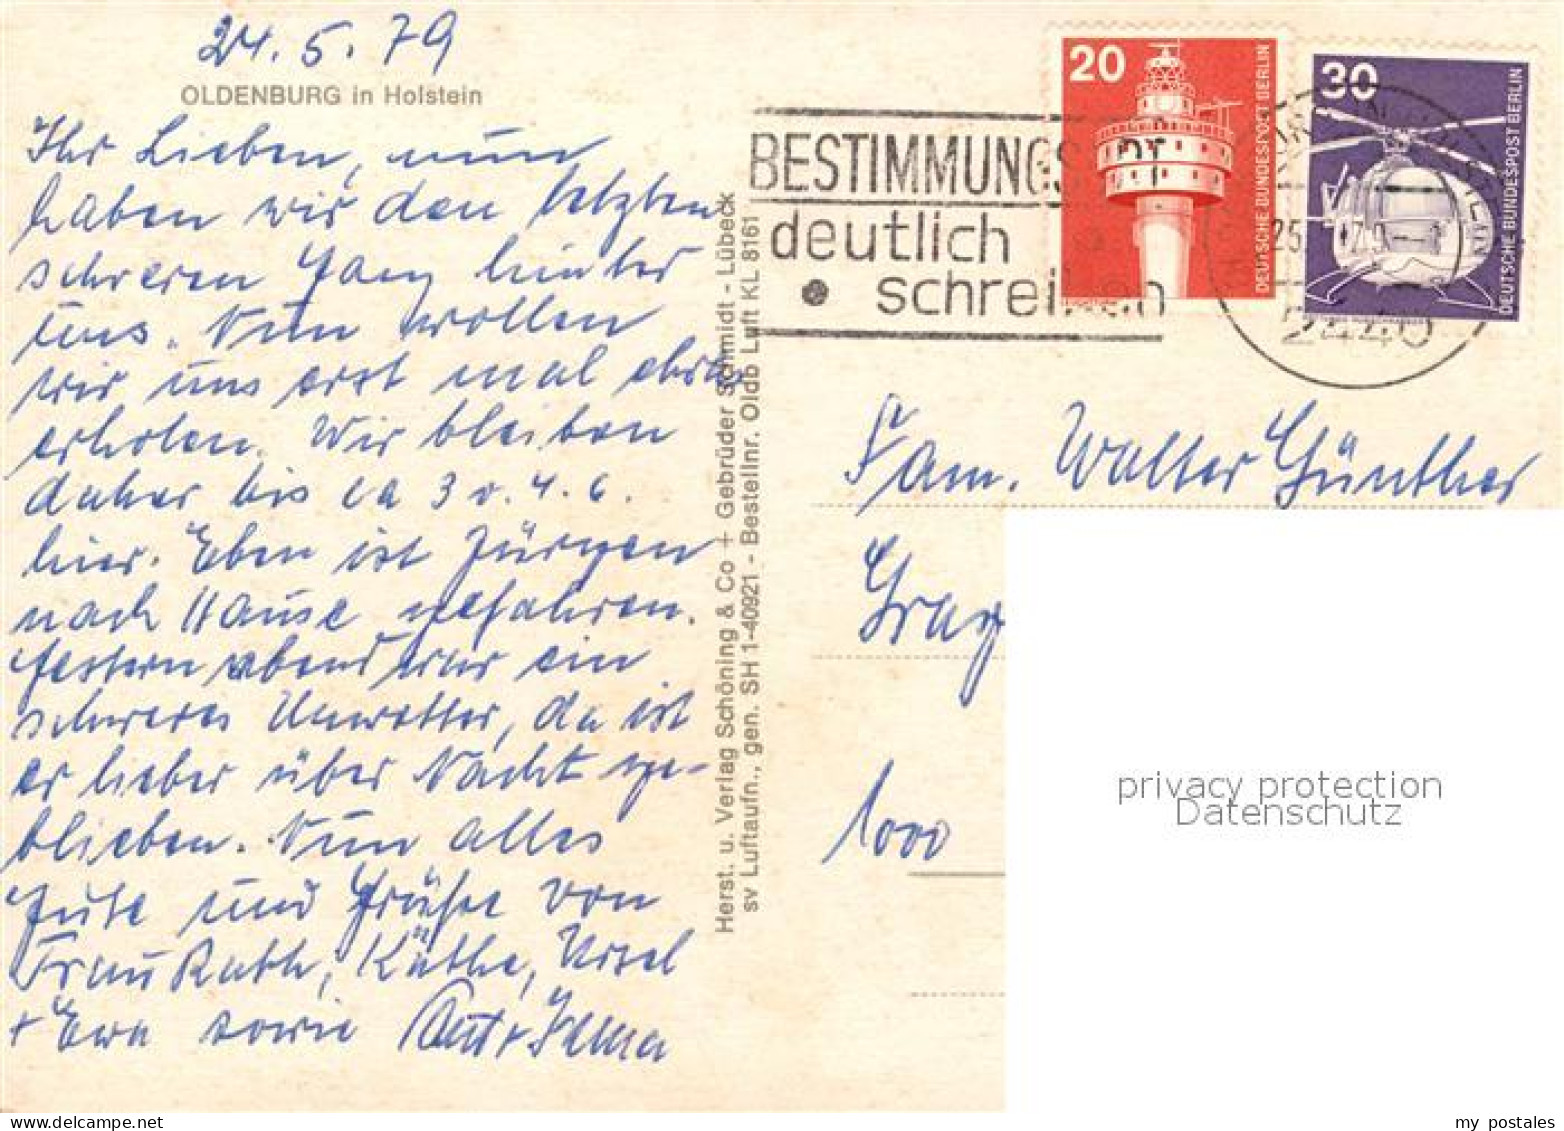 24.5.79
OLDENBURG in Holstein
Ihr Lieben, nun
haben wir den letzten
schweren Gang hinter
uns. Nun wollen
wir uns erst mal etwas
erholen. Wir bleiben
daher bis ca 3 o. 4. 6.
hier. Eben ist Jürgen
nach Hause gefahren.
Gestern abend war ein
schweres Unwetter, da ist
er lieber über Nacht ge-
blieben. Nun alles
Gute und Grüße von
Frau Rath, Käthe, Ursel
+ Ewa sowie
Herst. u. Verlag Schöning & Co + Gebrüder Schmidt - Lübeck
sv Luftaufn., gen. SH 1-40921 - Bestellnr. Oldb Luft KL 8161
BESTIMMUNGSORT
deutlich
schreiben
20
DEUTSCHE BUNDESPOST BERLIN
30
DEUTSCHE BUNDESPOST BERLIN
2440
Fam. Walter Günther
1000
privacy protection
Datenschutz
my postales